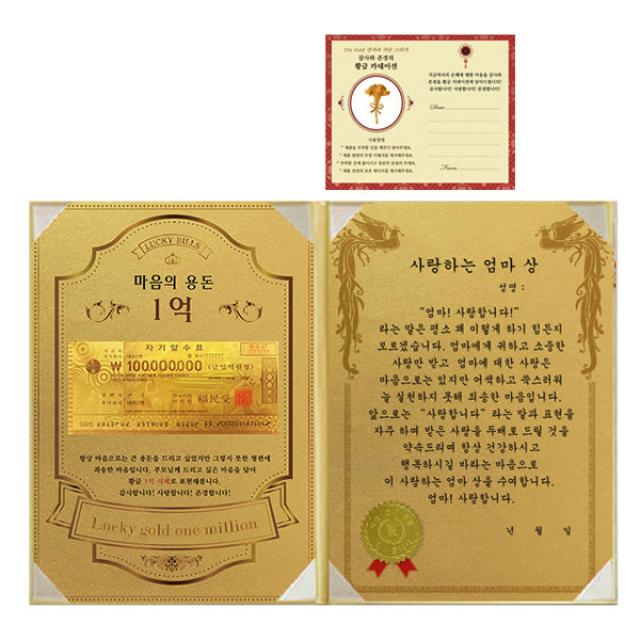 24k Gold 전자파 차단 스티커
감사와 존경의
황금 카네이션
사용방법
지금까지의 은혜에 대한 마음을 감사와
존경을 황금 카네이션에 담아드립니다!
감사합니다! 사랑합니다! 존경합니다!
Dear
From
LUCKY BILLS
마음의 용돈
1억
자기앞수표
₩ 100,000,000 (금일억원정)
福民受
항상 마음으로는 큰 용돈을 드리고 싶었지만 그렇지 못한 형편에
죄송한 마음입니다. 부모님께 드리고 싶은 마음을 담아
황금 1억 지폐로 표현해봅니다.
감사합니다! 사랑합니다! 존경합니다!
Lucky gold one million
사랑하는 엄마 상
성명 :
"엄마! 사랑합니다!"
라는 말은 평소 왜 이렇게 하기 힘든지
모르겠습니다. 엄마에게 귀하고 소중한
사랑만 받고 엄마에 대한 사랑은
마음으로는 있지만 어색하고 쑥스러워
늘 실천하지 못해 죄송한 마음입니다.
앞으로는 "사랑합니다" 라는 말과 표현을
자주 하며 받은 사랑을 두배로 드릴 것을
약속드리며 항상 건강하시고
행복하시길 바라는 마음으로
이 사랑하는 엄마 상을 수여합니다.
엄마! 사랑합니다.
년 월 일